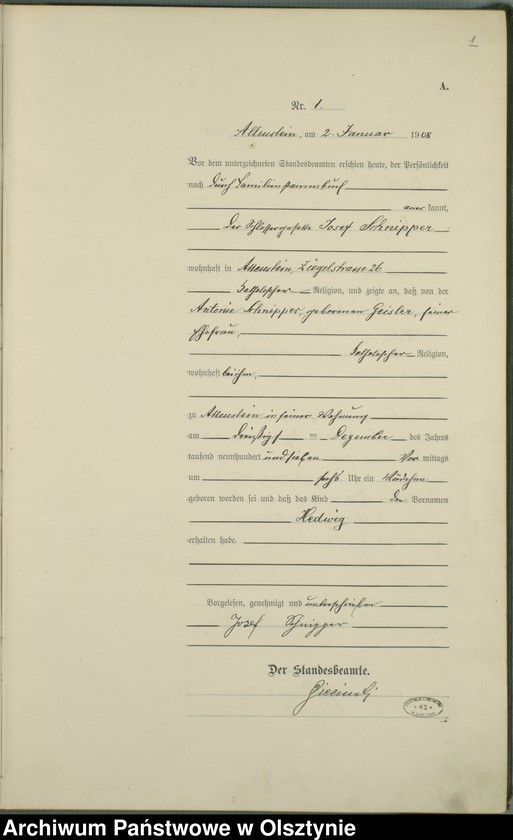 1
A.
Nr. 1.
Allenstein, am 2. Januar 1908
Vor dem unterzeichneten Standesbeamten erschien heute, der Persönlichkeit
nach durch Familienstammbuch
anerkannt,
der Schlossergeselle Josef Schnipper
wohnhaft in Allenstein, Ziegelstrasse 26
katholischer Religion, und zeigte an, daß von der
Antonie Schnipper, geborenen Geisler, seiner
Ehefrau,
katholischer Religion,
wohnhaft bei ihm,
zu Allenstein in seiner Wohnung
am dreißigsten Dezember des Jahres
tausend neunhundert und sieben Vormittags
um sechs Uhr ein Mädchen
geboren worden sei und daß das Kind den Vornamen
Hedwig
erhalten habe.
Vorgelesen, genehmigt und unterschrieben
Josef Schnipper
Der Standesbeamte.
42
Archiwum Państwowe w Olsztynie